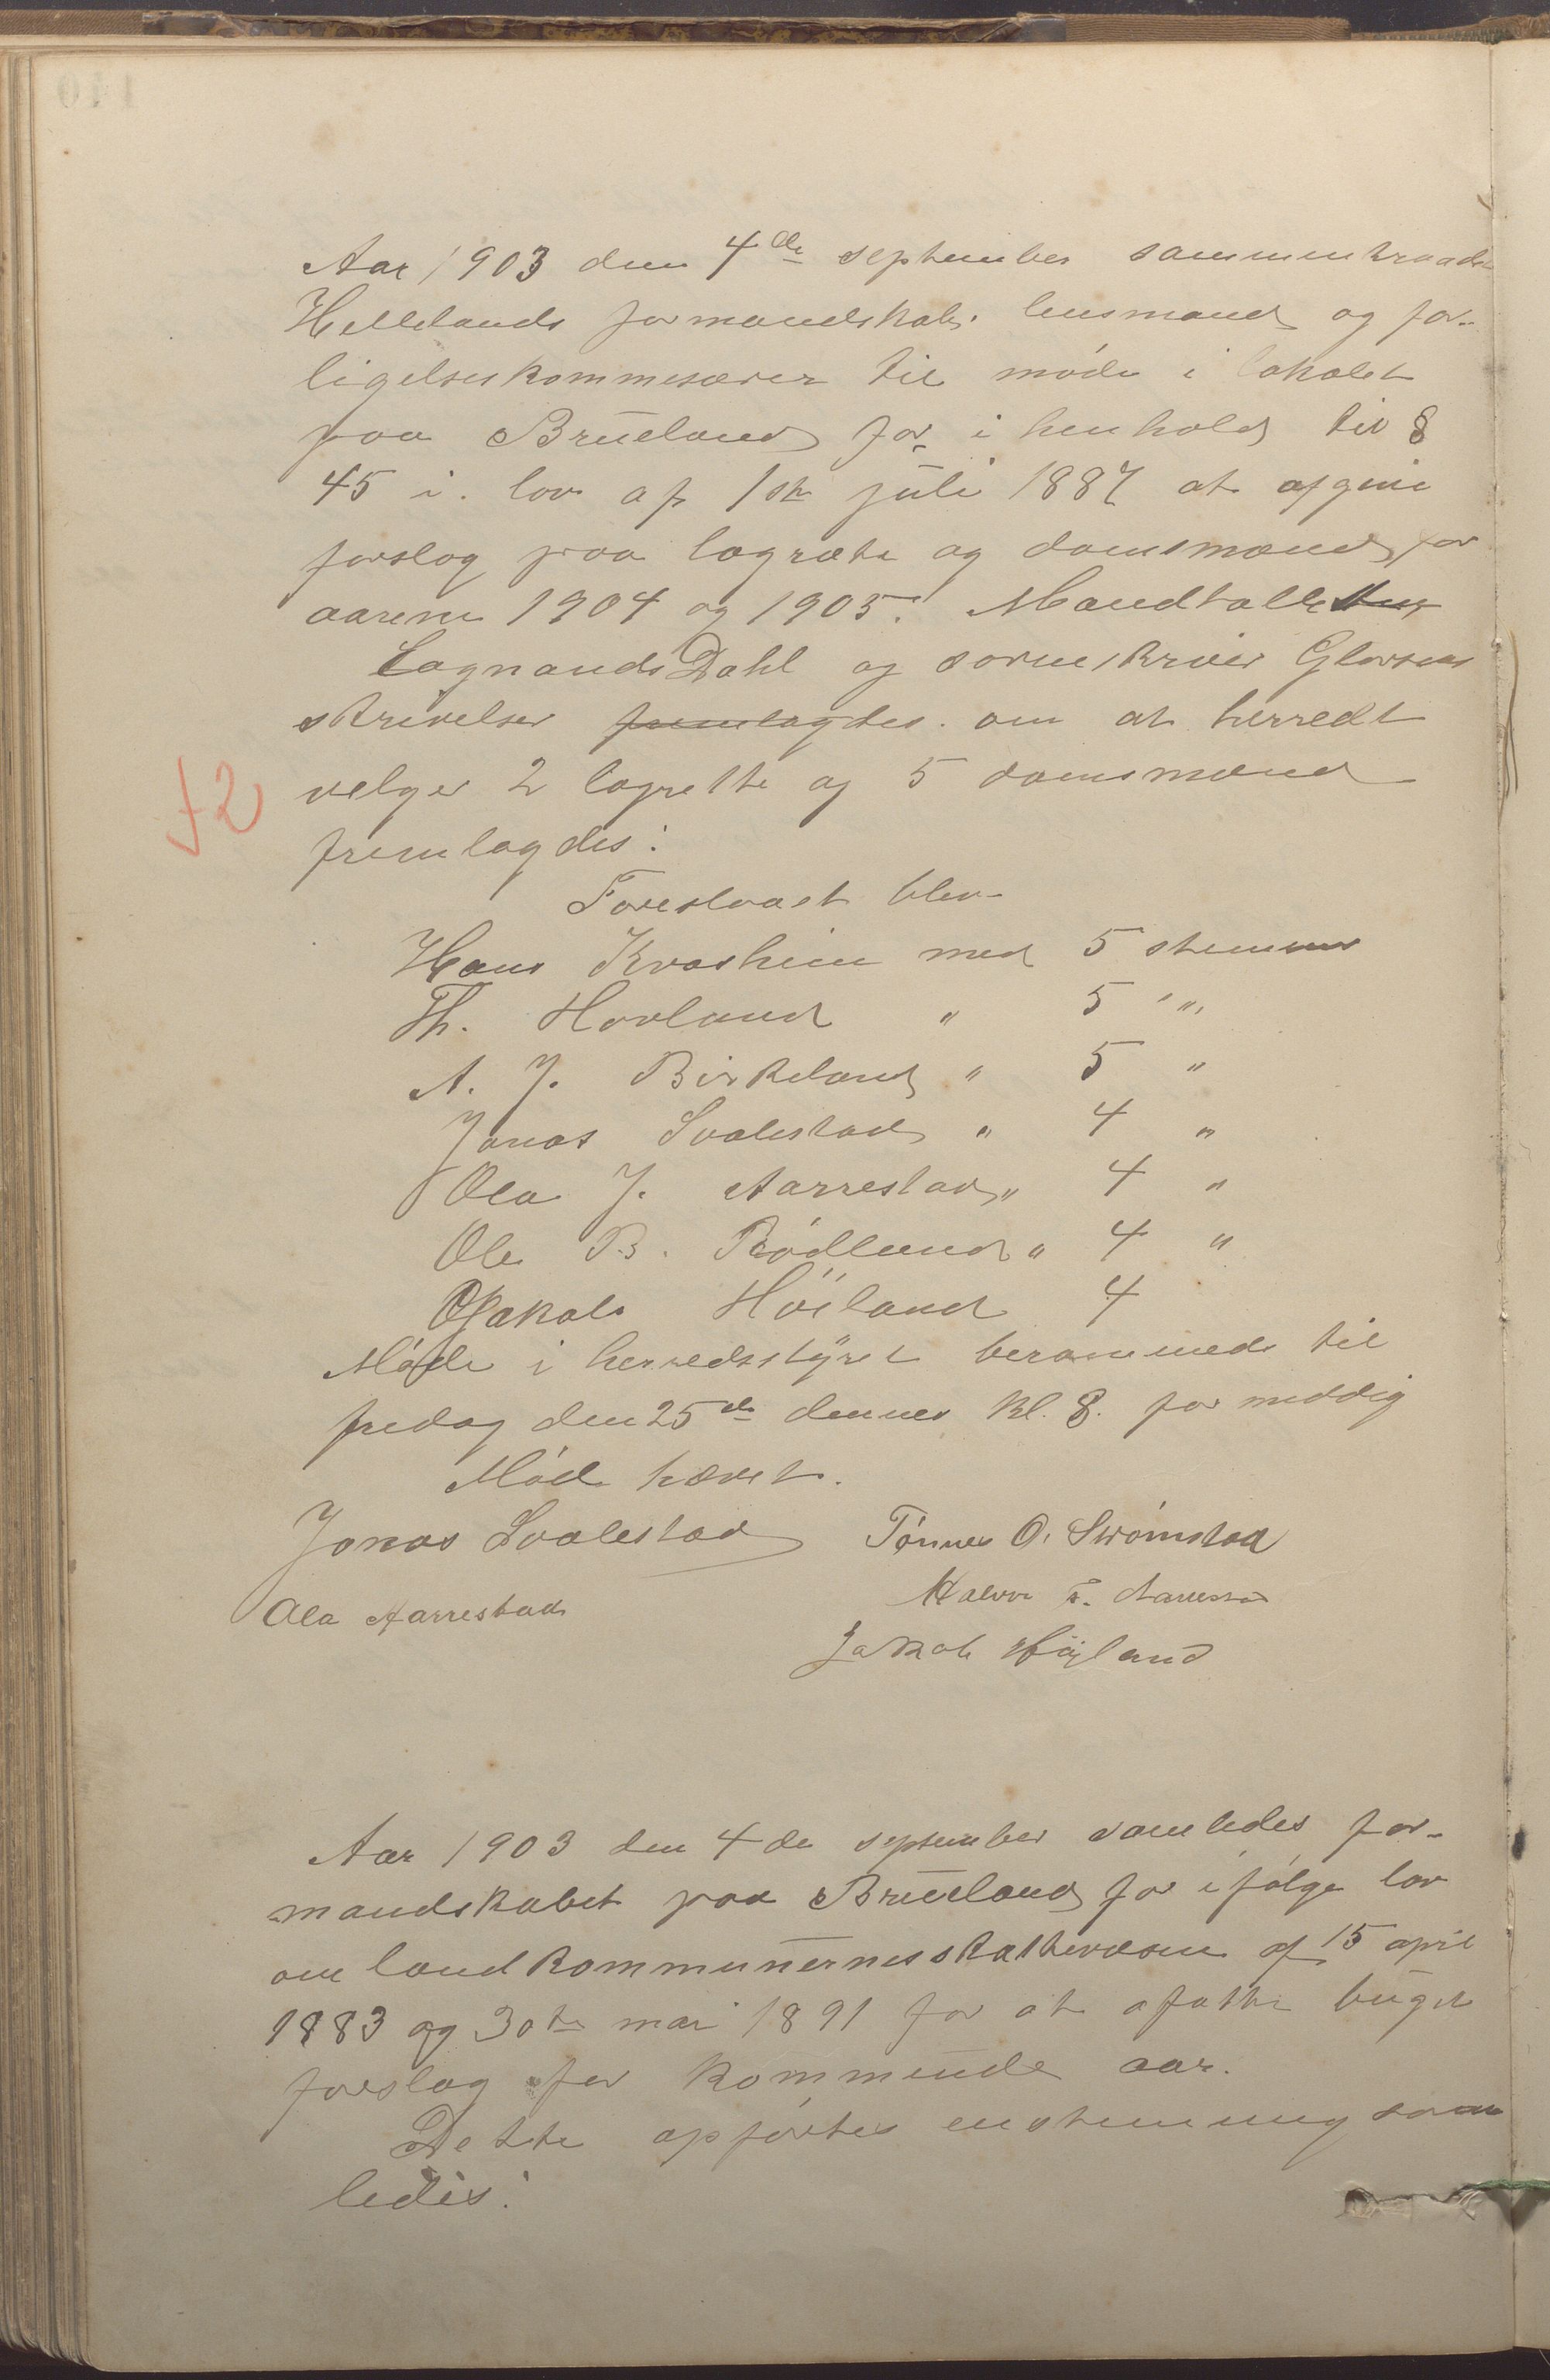 Aar 1903 den 4de september sammentraadte
Hellelands formandskab, lensmand og for-
ligelseskommesærer til møde i lokalet
paa Brueland for i henhold til §
45 i. lov af 1ste juli 1887 at afgive
forslag paa lagrette og domsmænd for
aarene 1904 og 1905. Mandtallet
Lagmands Dahl og sorenskriver
skrivelser fremlagdes. om at herredt
velger 2 lagrette og 5 domsmænd
fremlagdes:
Foreslaaet blev
Hans Kvasheim med 5 stemmer
Th. Hovland " 5 "
A. J. Birkeland " 5 "
Jonas Svalestad " 4 "
Ola J. Aarrestad " 4 "
Ole B. Rødland " 4 "
Jakob Höiland 4
Møde i herredsstyret berammede til
fredag den 25de dennes kl. 8. for middig
Møde hævet.
Jonas Svalestad Tønnes O. Strømstad
Ola Aarrestad
Jakob Høiland
Aar 1903 den 4de september samledes for-
mandskabet paa Brueland for ifølge lov
om landkommunernes skattevæsen af 15 april
1883 og 30te mai 1891 for at afatte buget
forslag for kommende aar.
Dette opførtes enstemmig saa
ledes:
12